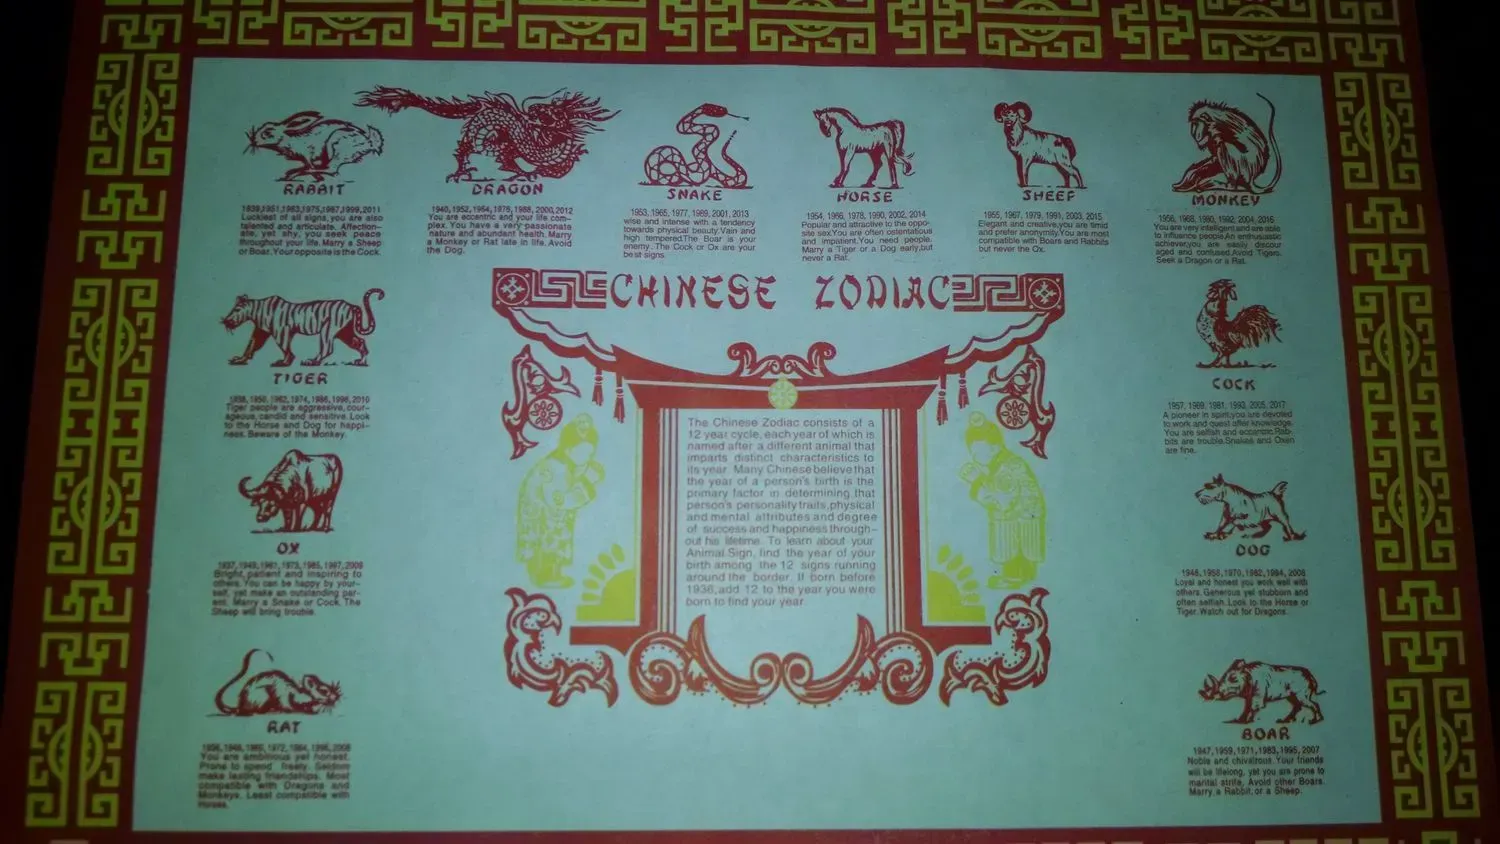 RABBIT
1939,1951,1963,1975,1987,1999,2011
Luckiest of all signs,you are also
talented and articulate. Affection-
ate, yet shy, you seek peace
throughout your life. Marry a Sheep
or Boar. Your opposite is the Cock.
DRAGON
1940, 1952, 1964, 1976, 1988, 2000, 2012
You are eccentric and your life com-
plex. You have a very passionate
nature and abundant health. Marry
a Monkey or Rat late in life. Avoid
the Dog.
SNAKE
1953, 1965, 1977, 1989, 2001, 2013
wise and intense with a tendency
towards physical beauty.Vain and
high tempered.The Boar is your
enemy. The Cock or Ox are your
best signs.
HORSE
1954, 1966, 1978, 1990, 2002, 2014
Popular and attractive to the oppo-
site sex.You are often ostentatious
and impatient.You need people.
Marry a Tiger or a Dog early,but
never a Rat.
SHEEP
1955, 1967, 1979, 1991, 2003, 2015
Elegant and creative,you are timid
and prefer anonymity.You are most
compatible with Boars and Rabbits
but never the Ox.
MONKEY
1956, 1968, 1980, 1992, 2004, 2016
You are very intelligent and are able
to influence people.An enthusiastic
achiever,you are easily discour
aged and confused.Avoid Tigers.
Seek a Dragon or a Rat.
CHINESE ZODIAC
TIGER
1938, 1950, 1962, 1974, 1986, 1998, 2010
Tiger people are aggressive,cour-
ageous, candid and sensitive. Look
to the Horse and Dog for happi-
ness. Beware of the Monkey.
COCK
1957, 1969, 1981, 1993, 2005, 2017
A pioneer in spirit,you are devoted
to work and quest after knowledge.
You are selfish and eccentric.Rab-
bits are trouble.Snakes and Oxen
are fine.
The Chinese Zodiac consists of a
12 year cycle, each year of which is
named after a different animal that
imparts distinct characteristics to
its year. Many Chinese believe that
the year of a person's birth is the
primary factor in determining that
person's personality traits,physical
and mental attributes and degree
of success and happiness through-
out his lifetime. To learn about your
Animal Sign, find the year of your
birth among the 12 signs running
around the border. If born before
1936,add 12 to the year you were
born to find your year.
OX
1937, 1949, 1961, 1973, 1985, 1997, 2009
Bright, patient and inspiring to
others. You can be happy by your-
self, yet make an outstanding par-
ent. Marry a Snake or Cock. The
Sheep will bring trouble.
DOG
1946, 1958, 1970, 1982, 1994, 2006
Loyal and honest you work well with
others. Generous yet stubborn and
often selfish. Look to the Horse or
Tiger. Watch out for Dragons.
RAT
1936, 1948, 1960, 1972, 1984, 1996, 2008
You are ambitious yet honest.
Prone to spend freely. Seldom
make lasting friendships. Most
compatible with Dragons and
Monkeys. Least compatible with
Horses.
BOAR
1947, 1959, 1971, 1983, 1995, 2007
Noble and chivalrous. Your friends
will be lifelong, yet you are prone to
marital strife. Avoid other Boars.
Marry a Rabbit or a Sheep.